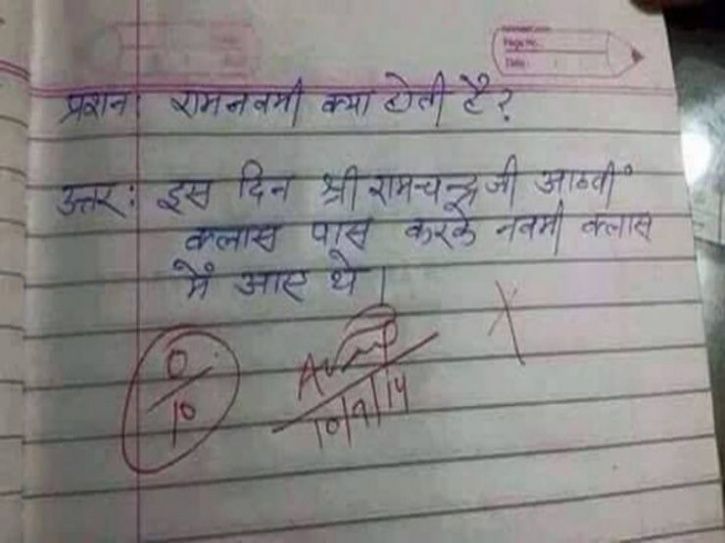 Page No.
Date:
प्रशन: रामनवमी क्या होती है?
उत्तर: इस दिन श्री रामचन्द्र जी आठवीं
क्लास पास करके नवमी क्लास
में आए थे।
0/10
10/9/14